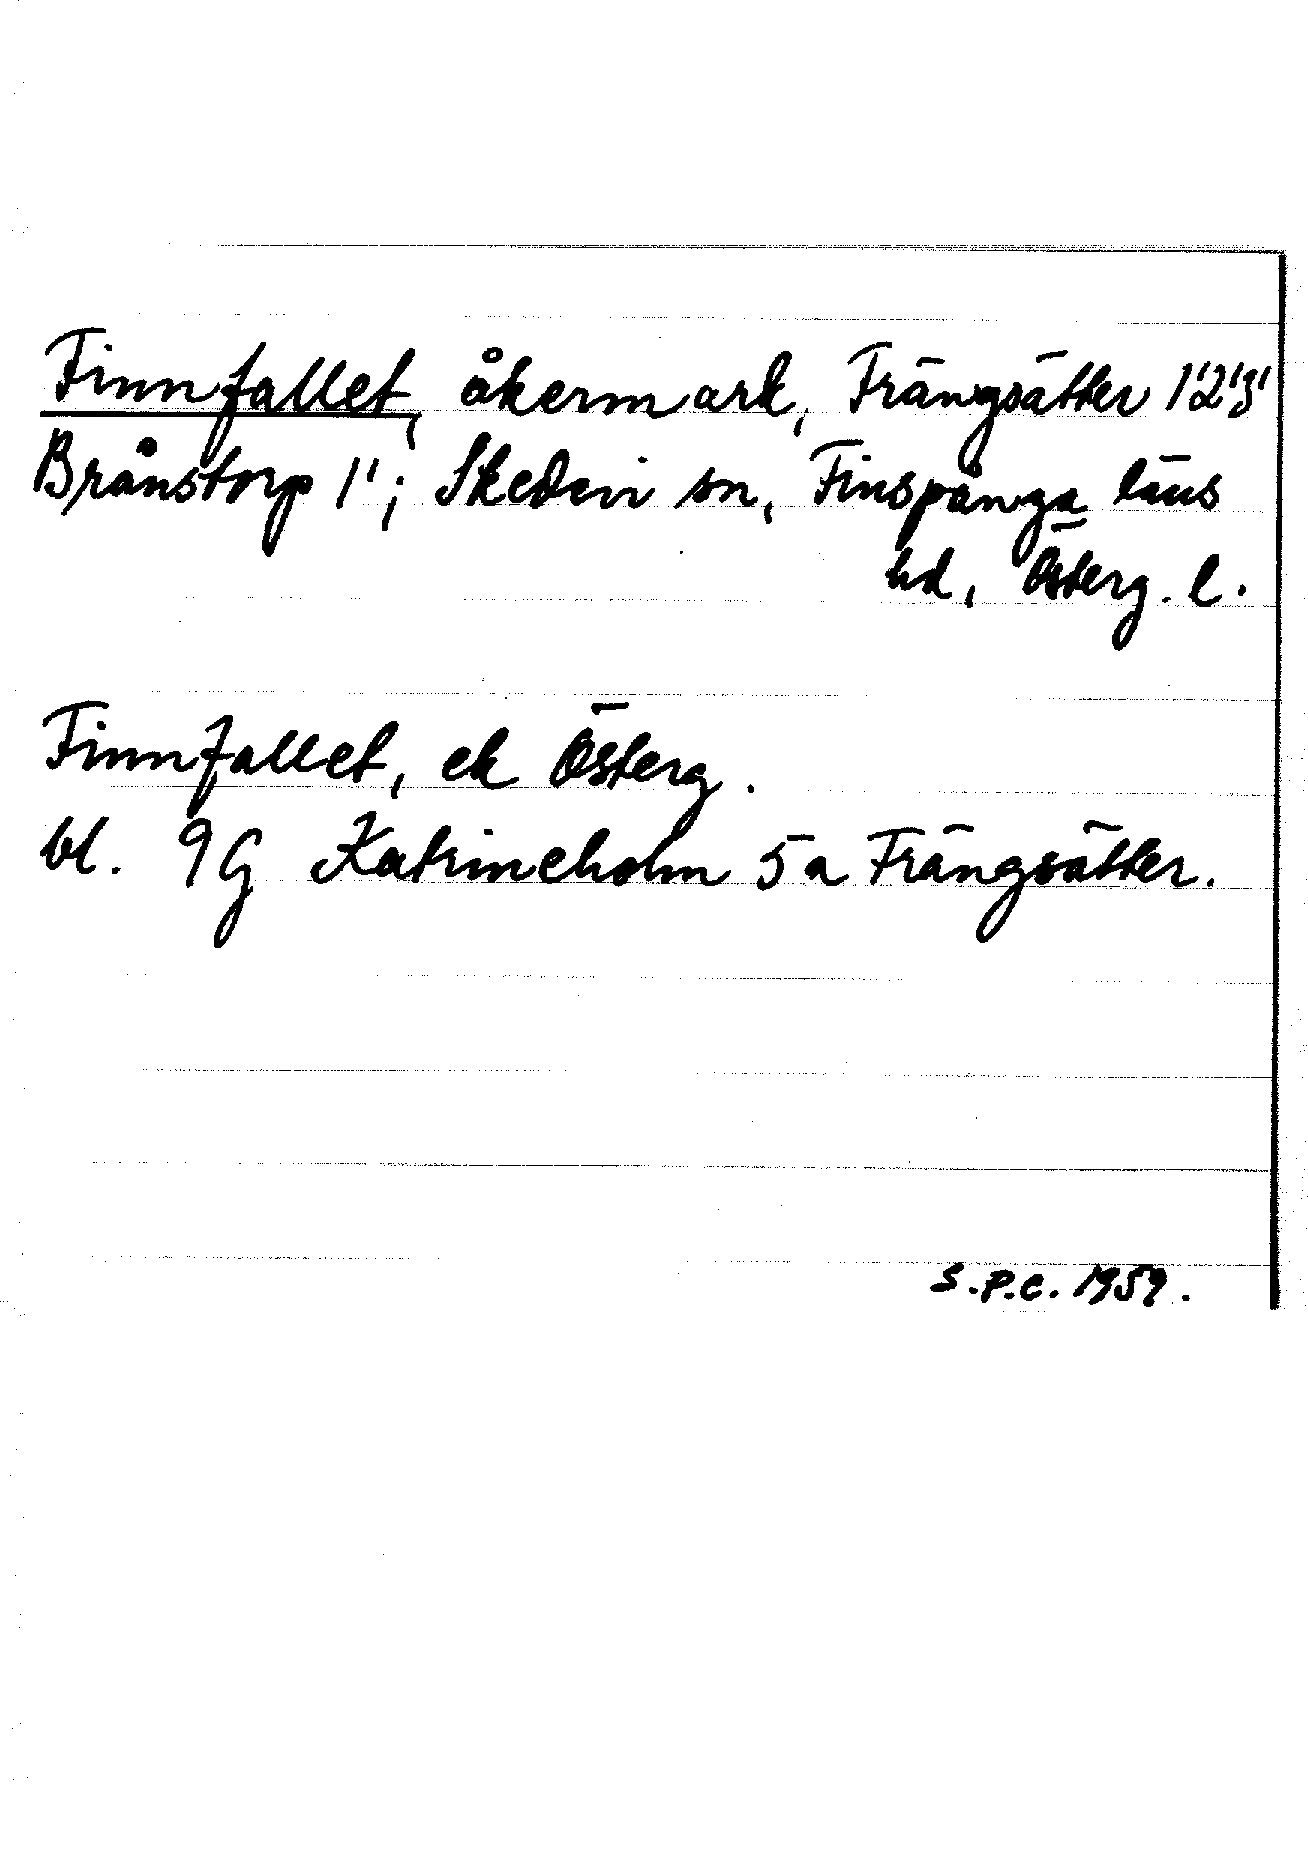 Finnfallet, åkermark, Frängsätter 1'2'3'
Brånstorp 1'; Skedevi sn, Finspånga läns
hd, Österg. l.
Finnfallet, ek Österg.
bl. 9G Katrineholm 5a Frängsätter.
S.P.C. 1959.